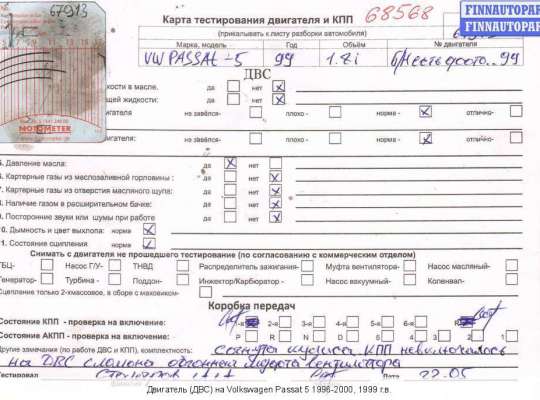 67913
FINNAUTOPAR
FINNAUTOPAR
Карта тестирования двигателя и КПП
68568
(прикалывать к листу разборки автомобиля)
Марка, модель
Год
Объём
№ двигателя
VW PASSAT-5 99 1.8i
ДВС
кости в масле. да нет
щей жидкости: да нет
вигателя не завёлся- плохо - норма - отлично-
вигателя: не завёлся- плохо - норма - отлично-
MOTOMETER
5. Давление масла: да нет
6. Картерные газы из маслозаливной горловины : да нет
7. Картерные газы из отверстия масляного щупа: да нет
8. Наличие газом в расширительном бачке: да нет
9. Посторонние звуки или шумы при работе да нет
10. Дымность и цвет выхлопа: норма
11. Состояние сцепления норма
Снимать с двигателя не прошедшего тестирование (по согласованию с коммерческим отделом)
ТБЦ- Насос Г/У- ТНВД Распределитель зажигания- Муфта вентилятора- Насос масляный-
Генератор- Турбина - Поддон- Инжектор/Карбюратор - Насос вакуумный- Коленвал-
Сцепление только 2-хмассовое, в сборе с маховиком-
Коробка передач
Состояние КПП - проверка на включение: 2-я 3-я 4-я 5-я 6-я
Состояние АКПП - проверка на включение: P R N D 4 3 2 1
Другие замечания (по работе ДВС и КПП), комплектность: КПП не включалось
на ДВС сломана муфта вентилятора
Тестировал Дата 22.05
Двигатель (ДВС) на Volkswagen Passat 5 1996-2000, 1999 г.в.